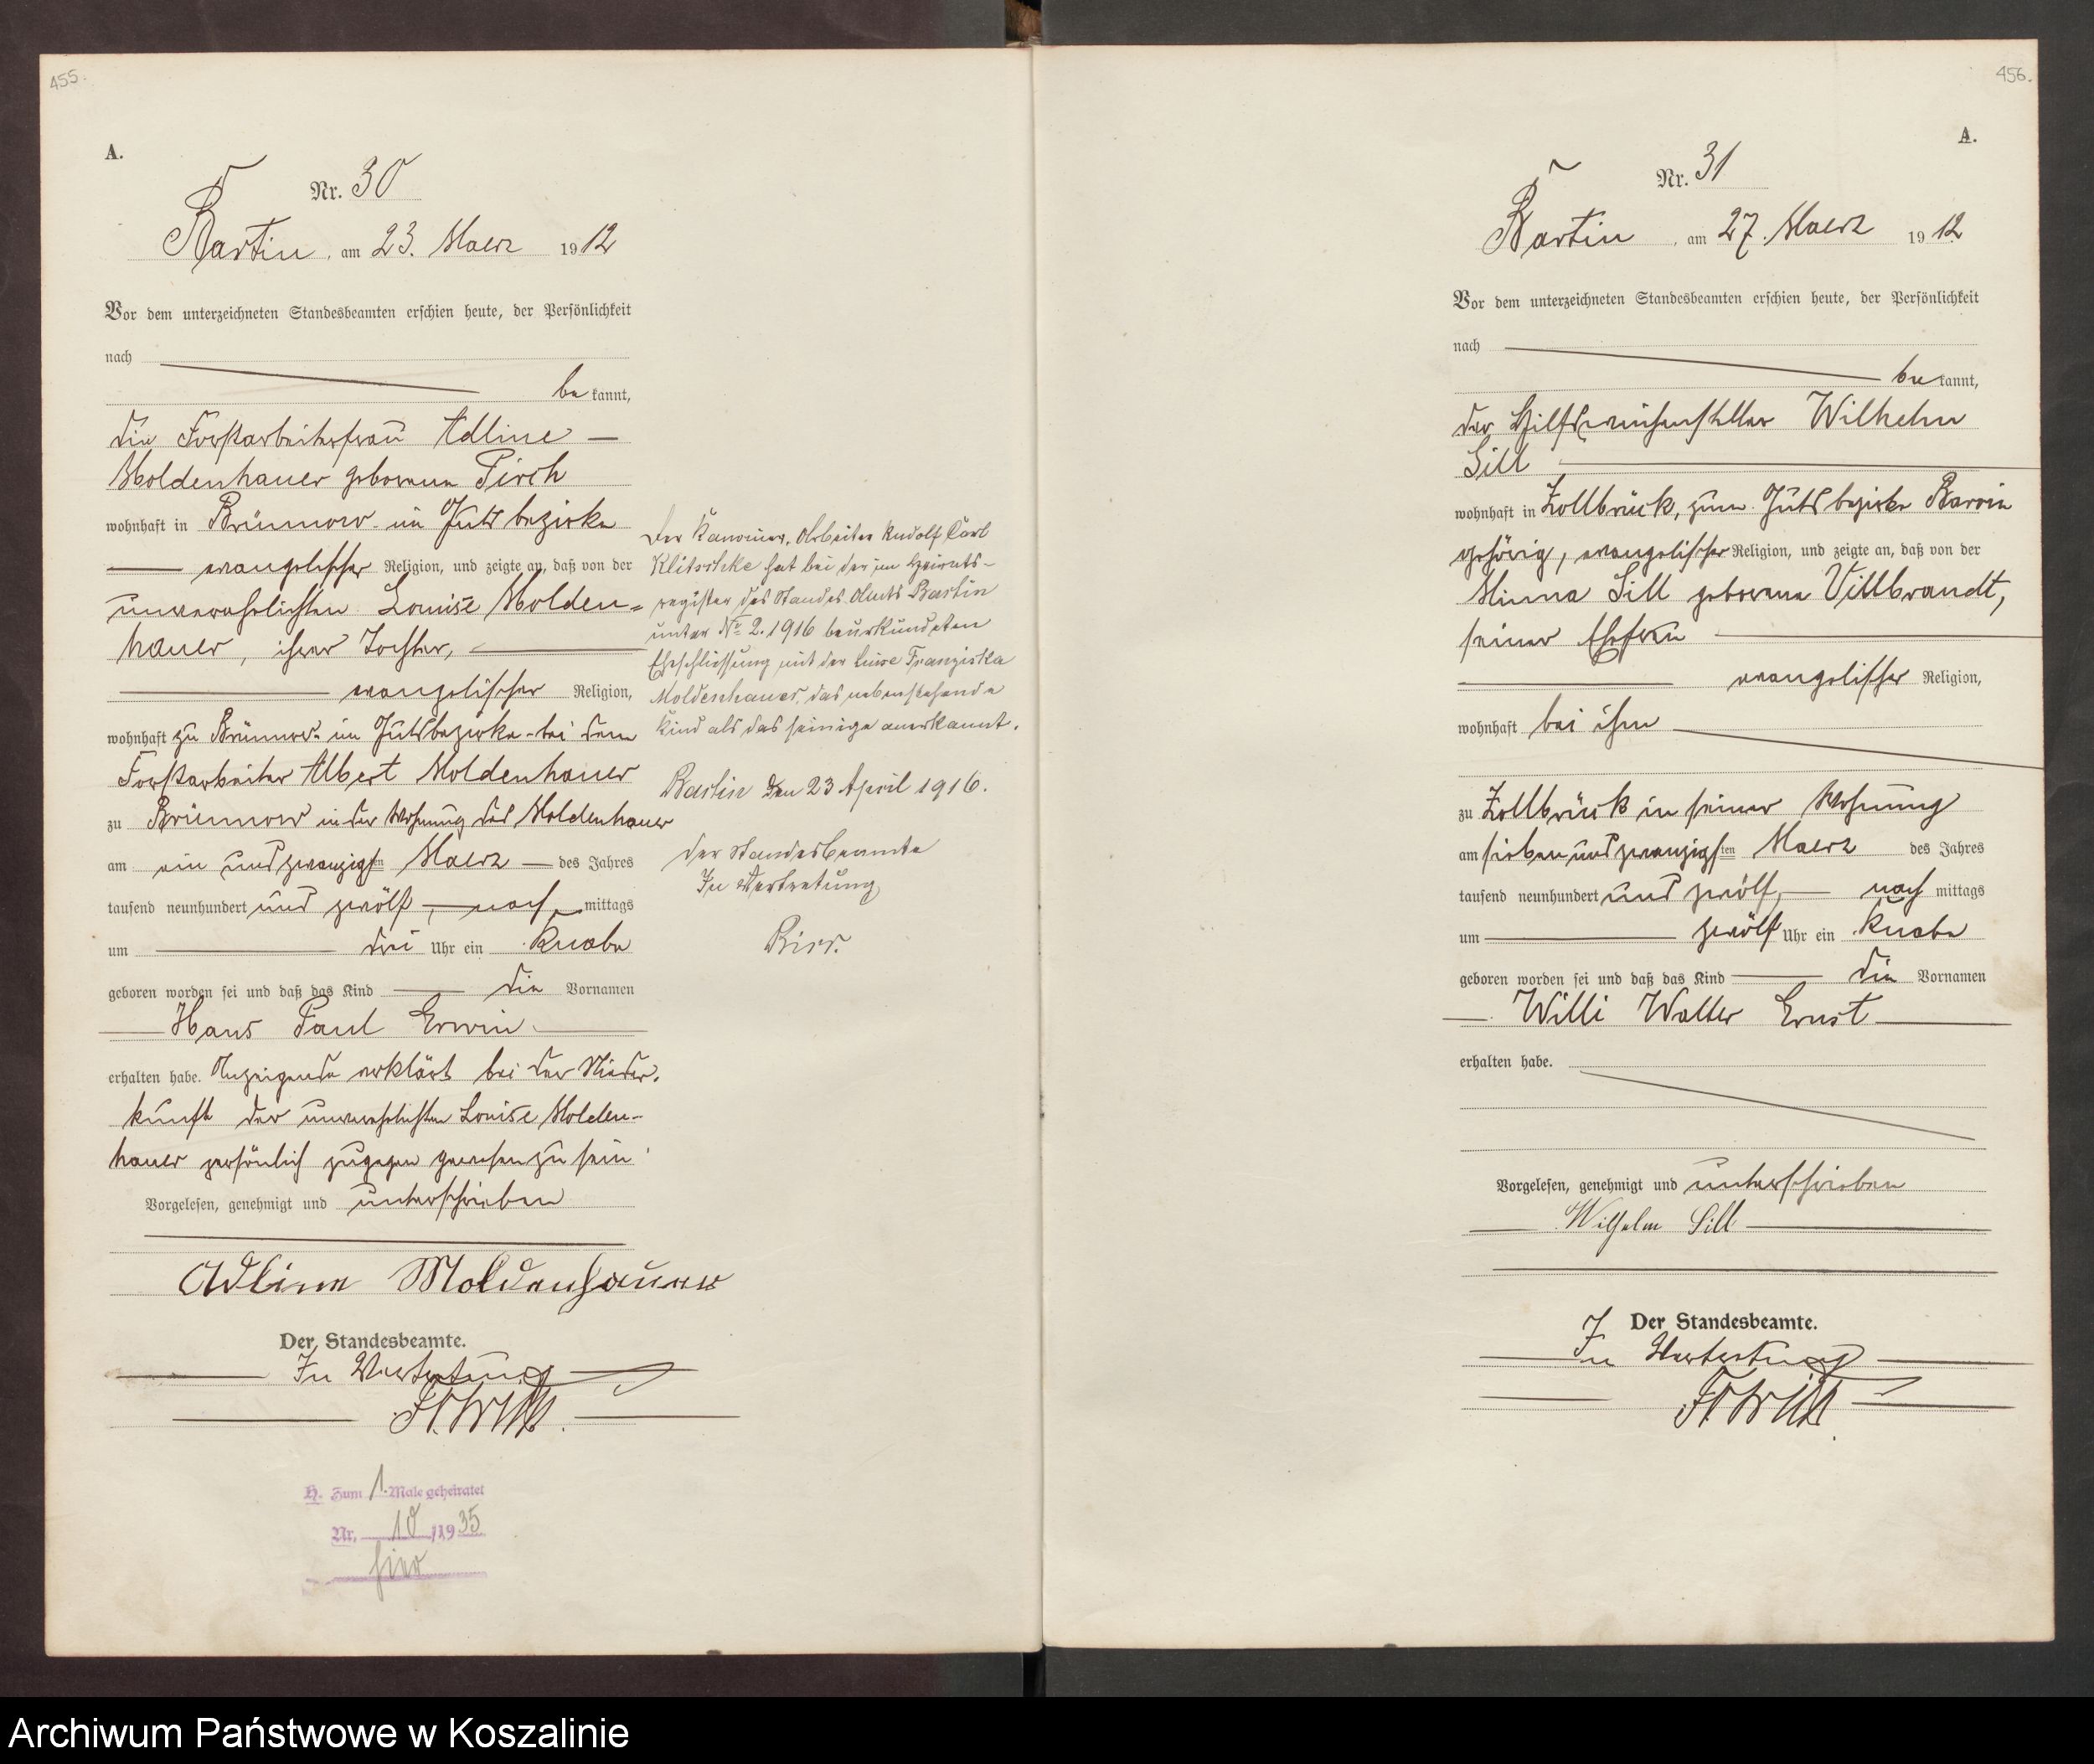 455.
A.
Nr. 30
Bartin, am 23. Maerz 1912
Vor dem unterzeichneten Standesbeamten erschien heute, der Persönlichkeit
nach
be kannt,
die Forstarbeiterfrau Adline
Moldenhauer geborene Pirch
wohnhaft in Brünnow im Gutsbezirke
evangelischer Religion, und zeigte an, daß von der
unverehelichten Louise Molden=
hauer, ihrer Tochter,
evangelischer Religion,
wohnhaft zu Brünnow im Gutsbezirke bei dem
Forstarbeiter Albert Moldenhauer
zu Brünnow in der Wohnung des Moldenhauer
am ein und zwanzigsten Maerz des Jahres
tausend neunhundert und zwölf, nach mittags
um drei Uhr ein Knabe
geboren worden sei und daß das Kind die Vornamen
Hans Paul Erwin
erhalten habe. Anzeigende erklärt bei der Nieder-
kunft der unverehelichten Louise Molden-
hauer persönlich zugegen gewesen zu sein.
Vorgelesen, genehmigt und unterschrieben
Adline Moldenhauer
Der Standesbeamte.
In Vertretung
H. Zum 1. Male geheiratet
Nr. 10 /1935
hier
Der Kanonier, Arbeiter Rudolf Carl
Klitschke hat bei der im Heirats-
register des Standes-Amts Bartin
unter No 2. 1916 beurkundeten
Eheschliessung mit der Luise Franziska
Moldenhauer, das nebenstehende
Kind als das seinige anerkannt.
Bartin den 23 April 1916.
Der Standesbeamte
In Vertretung
456.
A.
Nr. 31
Bartin, am 27. Maerz 1912
Vor dem unterzeichneten Standesbeamten erschien heute, der Persönlichkeit
nach
be kannt,
der Hilfsweichensteller Wilhelm
Sill
wohnhaft in Zollbrück, zum Gutsbezirke Barvin
gehörig, evangelischer Religion, und zeigte an, daß von der
Minna Sill geborene Villbrandt,
seiner Ehefrau
evangelischer Religion,
wohnhaft bei ihm
zu Zollbrück in seiner Wohnung
am sieben und zwanzigsten Maerz des Jahres
tausend neunhundert und zwölf, nach mittags
um zwölf Uhr ein Knabe
geboren worden sei und daß das Kind die Vornamen
Willi Walter Ernst
erhalten habe.
Vorgelesen, genehmigt und unterschrieben
Wilhelm Sill
Der Standesbeamte.
In Vertretung
Archiwum Państwowe w Koszalinie